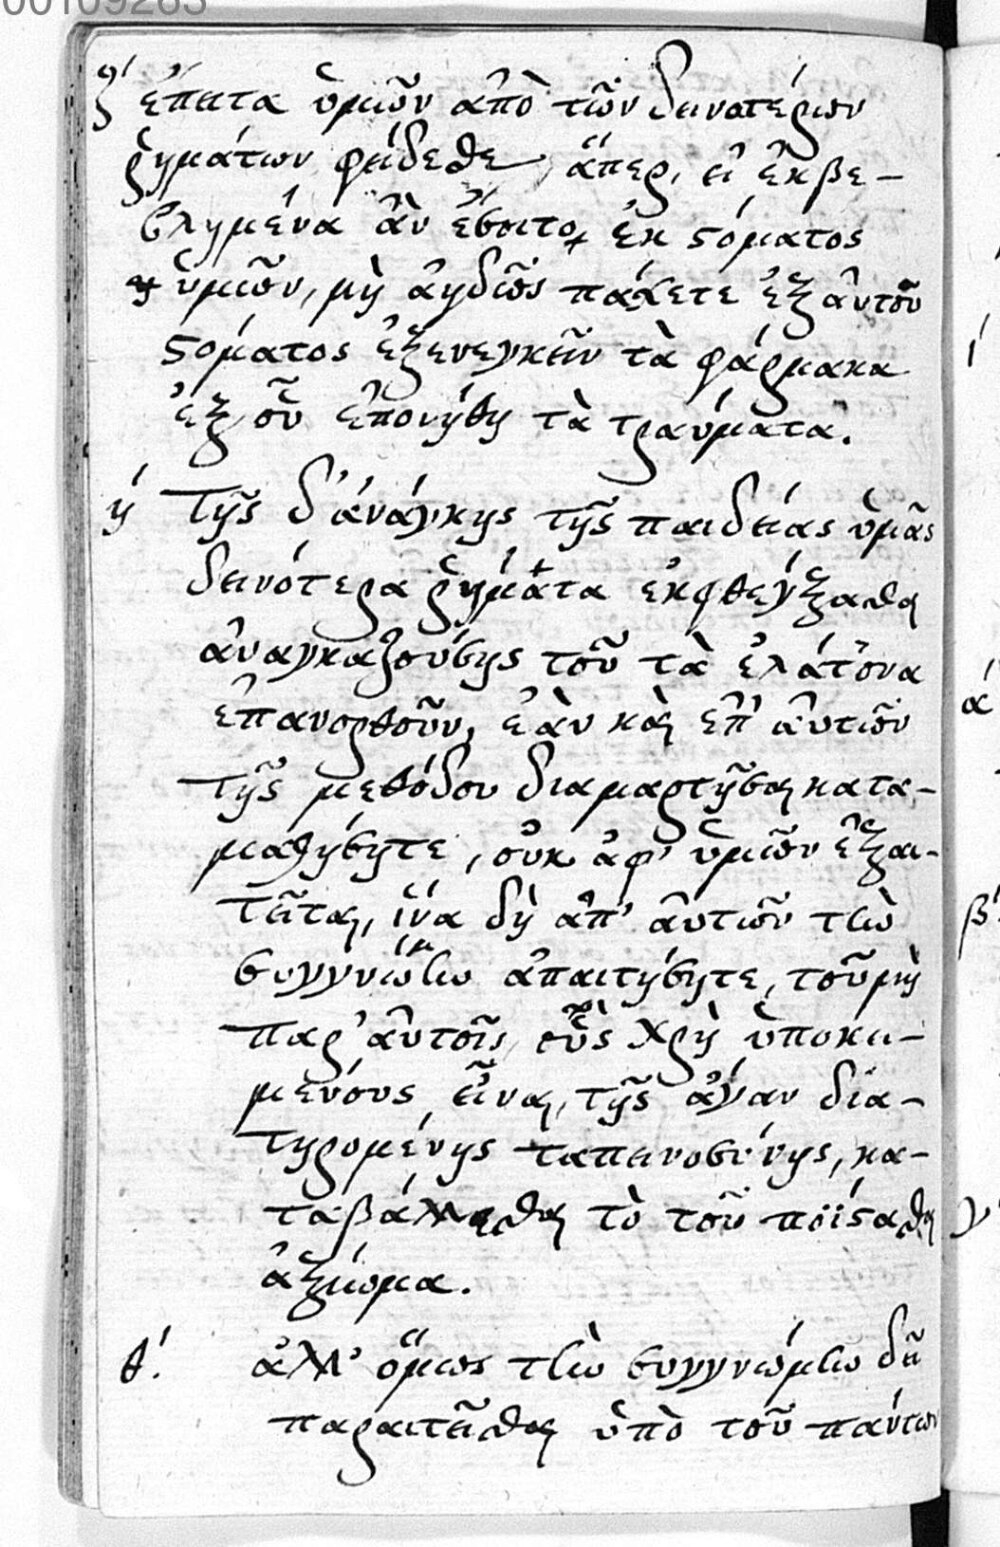 00109283
ζ' ἔπειτα ὑμῶν ἀπὸ τῶν δεινοτέρων
ῥημάτων φείδεσθε, ἅπερ, εἰ ἐκβε-
βλημένα ἂν ἔσοιτο, ἐκ στόματος
ὑμῶν, μὴ ἀηδῶς πάσχετε ἐξ αὐτοῦ
στόματος ἐξενεγκεῖν τὰ φάρμακα
ἐξ οὗ ἐπονήθη τὰ τραύματα.
ή τῆς δ' ἀνάγκης τῆς παιδείας ὑμᾶς
δεινότερα ῥήματα ἐκφθέγξασθαι
ἀναγκαζούσης τοῦ τὰ ἐλάττονα
ἐπανορθοῦν, ἐὰν καὶ ἐπ' αὐτῶν
τῆς μεθόδου διαμαρτῆσαι κατα-
μαθήσητε, οὐκ ἀφ' ὑμῶν ἐξαι-
τεῖται, ἵνα δὴ ἀπ' αὐτῶν τὴν
συγγνώμην ἀπαιτήσητε, τοῦ μὴ
παρ' αὐτοῖς, οὓς χρὴ ὑποκει-
μένους εἶναι, τῆς ἄγαν δια-
τηρομένης ταπεινοσύνης, κα-
ταβάλλεσθαι τὸ τοῦ ποΐστασθαι
ἀξίωμα.
θ'. ἀλλ' ὅμως τὴν συγγνώμην δεῖ
παραιτεῖσθαι ὑπὸ τοῦ πάντων
ί
ά
β'
γ'